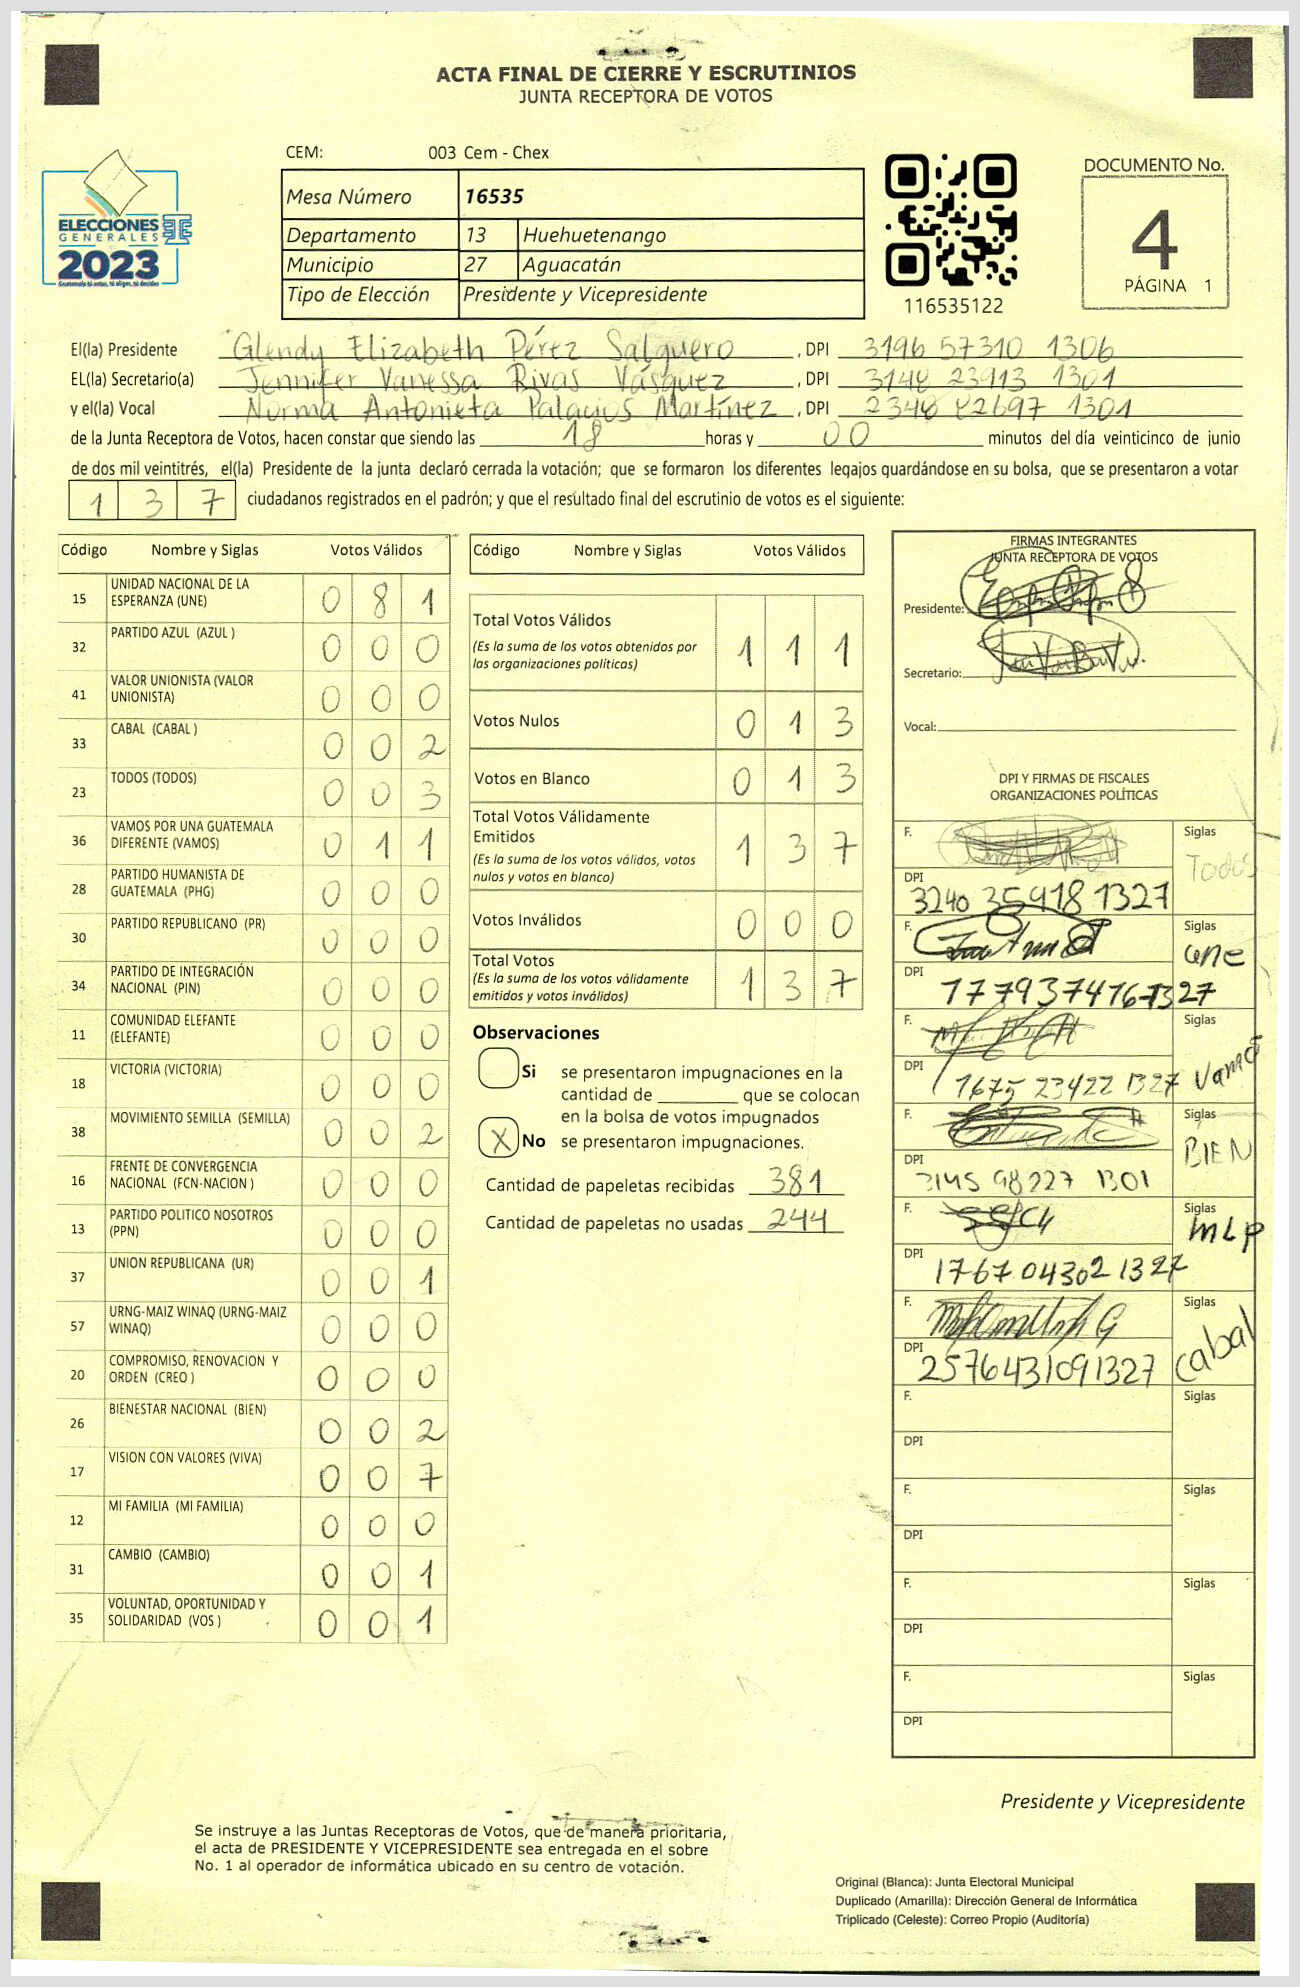 ACTA FINAL DE CIERRE Y ESCRUTINIOS
JUNTA RECEPTORA DE VOTOS
CEM: 003 Cem - Chex
ELECCIONES
GENERALES
2023
Guatemala tú votas, tú eliges, tú decides
Mesa Número 16535
Departamento 13 Huehuetenango
Municipio 27 Aguacatán
Tipo de Elección Presidente y Vicepresidente
116535122
DOCUMENTO No.
4
PÁGINA 1
El(la) Presidente Glendy Elizabeth Pérez Salguero , DPI 3196 57310 1306
EL(la) Secretario(a) Jennifer Vanessa Rivas Vásquez , DPI 3148 23913 1301
y el(la) Vocal Norma Antonieta Palacios Martínez , DPI 2348 82697 1301
de la Junta Receptora de Votos, hacen constar que siendo las 18 horas y 00 minutos del día veinticinco de junio
de dos mil veintitrés, el(la) Presidente de la junta declaró cerrada la votación; que se formaron los diferentes legajos guardándose en su bolsa, que se presentaron a votar
1 3 7 ciudadanos registrados en el padrón; y que el resultado final del escrutinio de votos es el siguiente:
Código Nombre y Siglas Votos Válidos
15 UNIDAD NACIONAL DE LA ESPERANZA (UNE) 0 8 1
32 PARTIDO AZUL (AZUL ) 0 0 0
41 VALOR UNIONISTA (VALOR UNIONISTA) 0 0 0
33 CABAL (CABAL ) 0 0 2
23 TODOS (TODOS) 0 0 3
36 VAMOS POR UNA GUATEMALA DIFERENTE (VAMOS) 0 1 1
28 PARTIDO HUMANISTA DE GUATEMALA (PHG) 0 0 0
30 PARTIDO REPUBLICANO (PR) 0 0 0
34 PARTIDO DE INTEGRACIÓN NACIONAL (PIN) 0 0 0
11 COMUNIDAD ELEFANTE (ELEFANTE) 0 0 0
18 VICTORIA (VICTORIA) 0 0 0
38 MOVIMIENTO SEMILLA (SEMILLA) 0 0 2
16 FRENTE DE CONVERGENCIA NACIONAL (FCN-NACION ) 0 0 0
13 PARTIDO POLITICO NOSOTROS (PPN) 0 0 0
37 UNION REPUBLICANA (UR) 0 0 1
57 URNG-MAIZ WINAQ (URNG-MAIZ WINAQ) 0 0 0
20 COMPROMISO, RENOVACION Y ORDEN (CREO ) 0 0 0
26 BIENESTAR NACIONAL (BIEN) 0 0 2
17 VISION CON VALORES (VIVA) 0 0 7
12 MI FAMILIA (MI FAMILIA) 0 0 0
31 CAMBIO (CAMBIO) 0 0 1
35 VOLUNTAD, OPORTUNIDAD Y SOLIDARIDAD (VOS ) 0 0 1
Código Nombre y Siglas Votos Válidos
Total Votos Válidos 1 1 1
(Es la suma de los votos obtenidos por
las organizaciones políticas)
Votos Nulos 0 1 3
Votos en Blanco 0 1 3
Total Votos Válidamente
Emitidos 1 3 7
(Es la suma de los votos válidos, votos
nulos y votos en blanco)
Votos Inválidos 0 0 0
Total Votos 1 3 7
(Es la suma de los votos válidamente
emitidos y votos inválidos)
Observaciones
Si se presentaron impugnaciones en la
cantidad de ________ que se colocan
en la bolsa de votos impugnados
X No se presentaron impugnaciones.
Cantidad de papeletas recibidas 381
Cantidad de papeletas no usadas 244
FIRMAS INTEGRANTES
JUNTA RECEPTORA DE VOTOS
Presidente:
Secretario:
Vocal:
DPI Y FIRMAS DE FISCALES
ORGANIZACIONES POLÍTICAS
F. Siglas Todos
DPI 3240 35918 1327
F. Siglas une
DPI 1779374761327
F. Siglas Vamos
DPI 1675 23422 1327
F. Siglas BIEN
DPI 3145 98227 1301
F. Siglas MLP
DPI 1767 04302 1327
F. Siglas Cabal
DPI 2576431091327
F. Siglas
DPI
F. Siglas
DPI
F. Siglas
DPI
F. Siglas
DPI
Presidente y Vicepresidente
Se instruye a las Juntas Receptoras de Votos, que de manera prioritaria,
el acta de PRESIDENTE Y VICEPRESIDENTE sea entregada en el sobre
No. 1 al operador de informática ubicado en su centro de votación.
Original (Blanca): Junta Electoral Municipal
Duplicado (Amarilla): Dirección General de Informática
Triplicado (Celeste): Correo Propio (Auditoría)